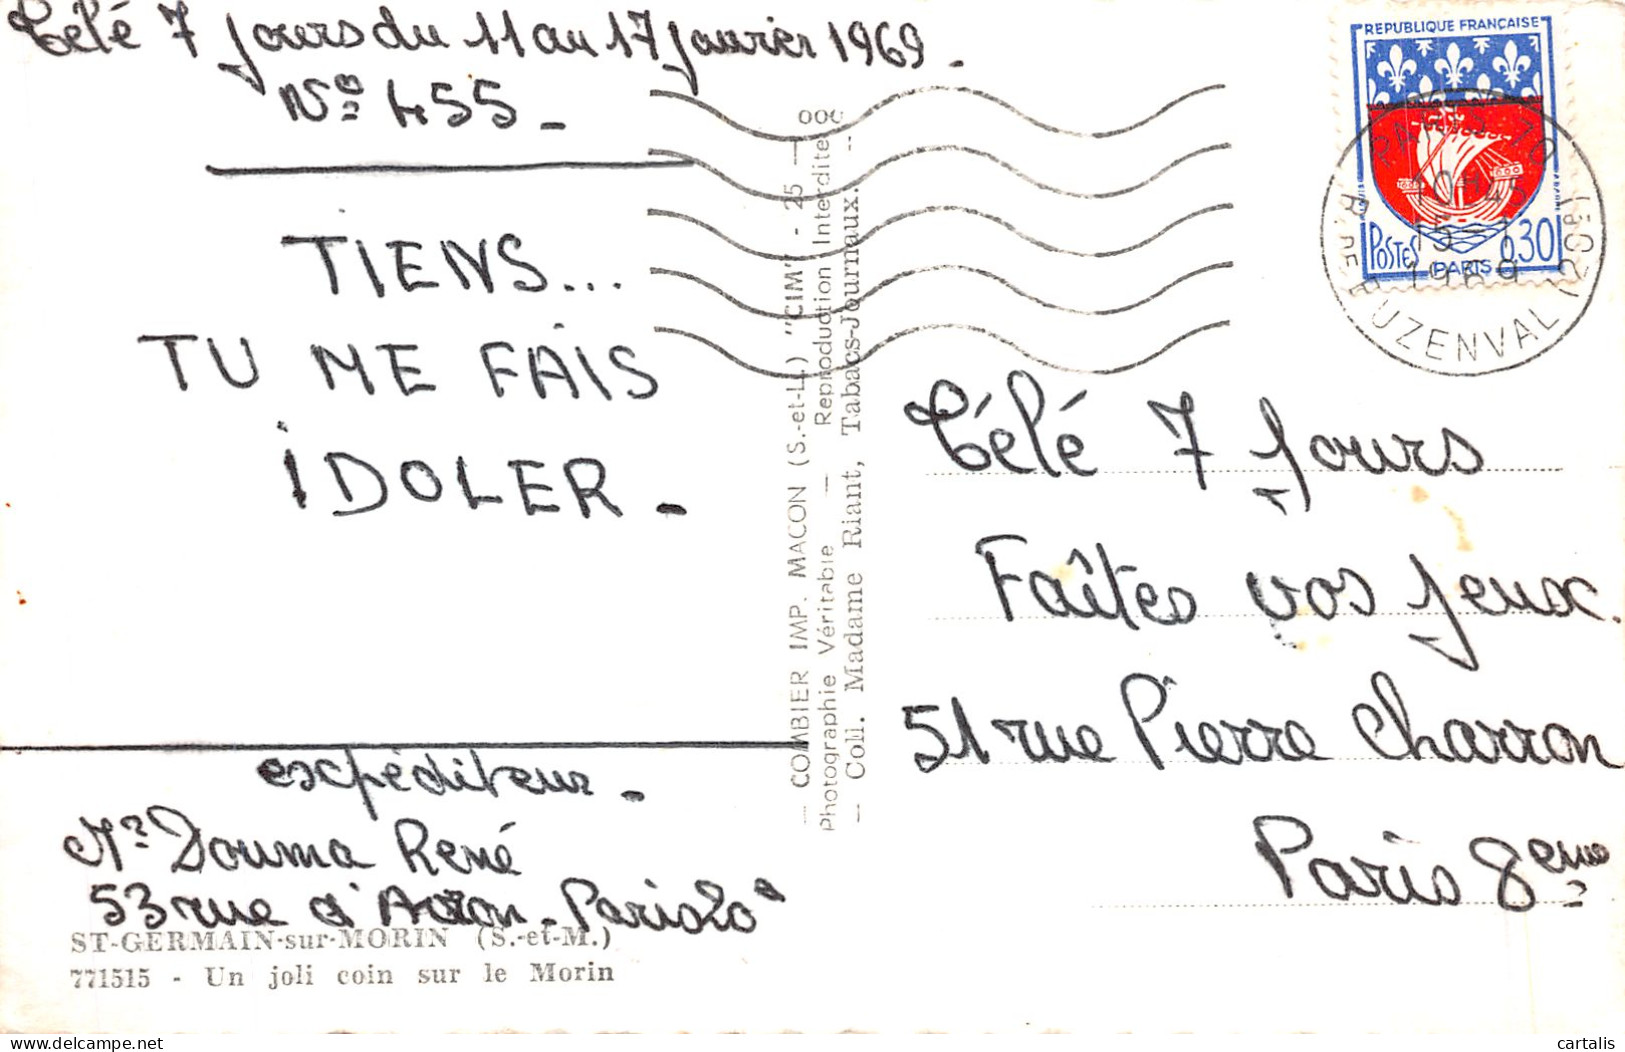 Télé 7 Jours du 11 au 17 janvier 1969.
Nº 455_
TIENS...
TU ME FAIS
iDOLER_
expéditeur_
Mr Douma René
53 rue d'Avron_Paris 20e
ST-GERMAIN-sur-MORIN (S.-et-M.)
771515 - Un joli coin sur le Morin
— COMBIER IMP. MACON (S.-et-L.) "CIM" - 25 —
Photographie Véritable — Reproduction Interdite
— Coll. Madame Riant, Tabacs-Journaux. --
REPUBLIQUE FRANÇAISE
POSTES 0,30
PARIS
10H45
15-1
1969
R. DE BUZENVAL (20E)
Télé 7 Jours
Faîtes vos jeux.
51 rue Pierre Charron
Paris 8eme
cartalis